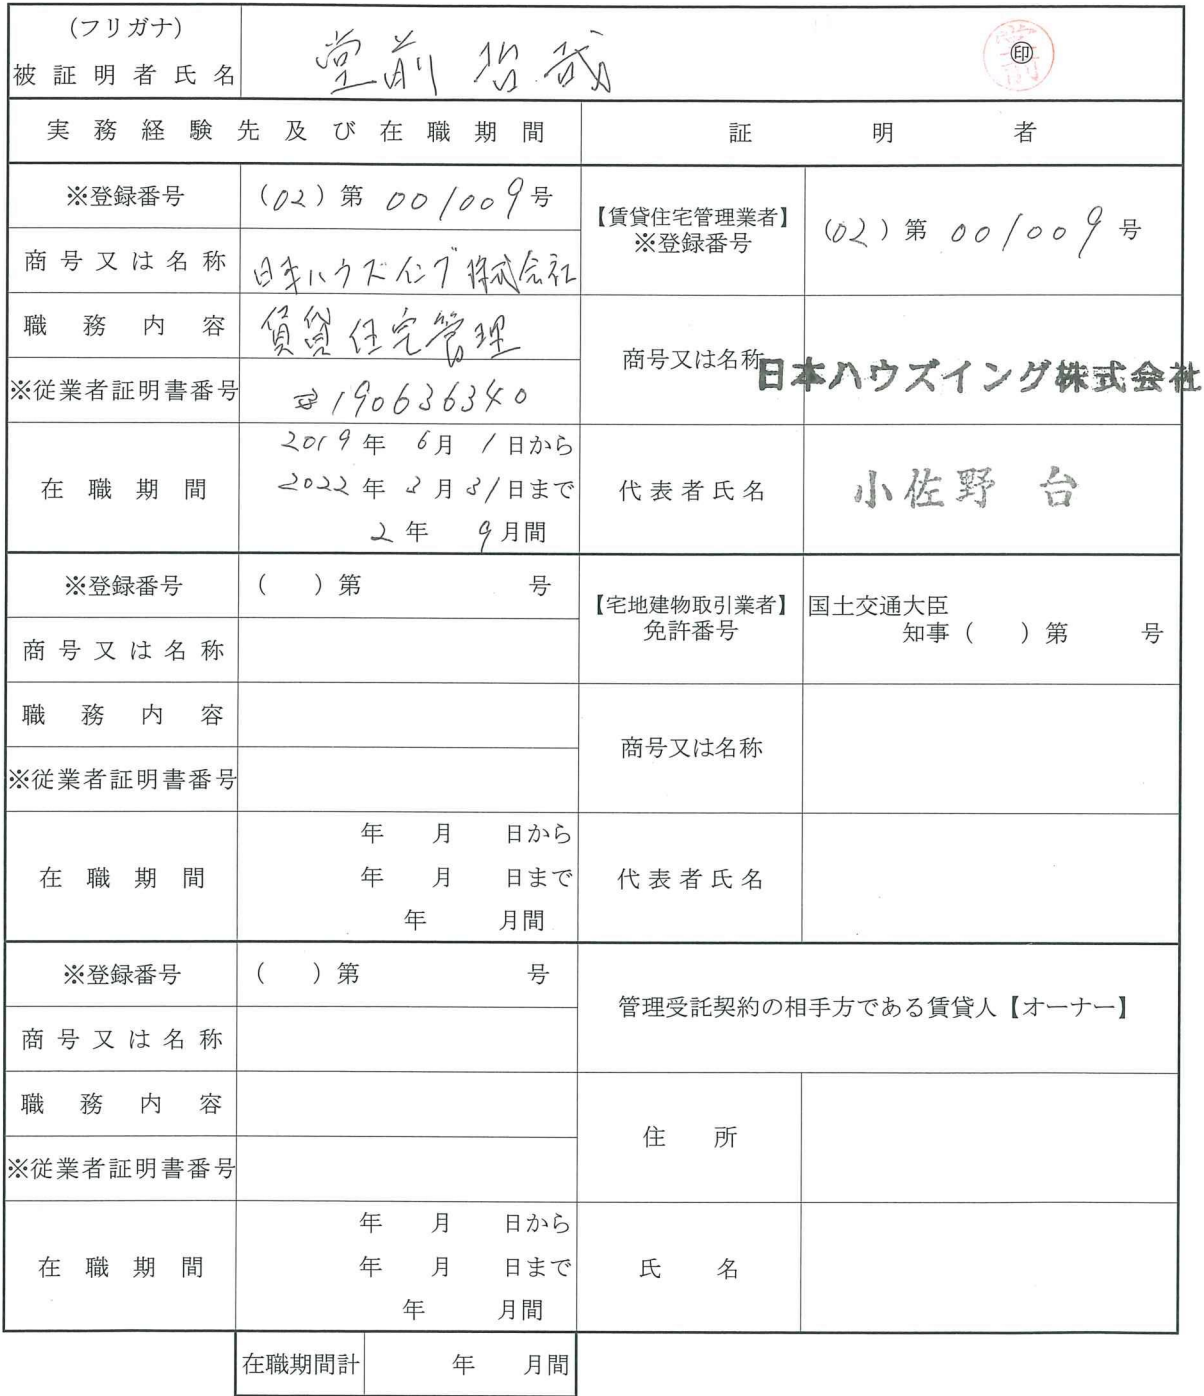 (フリガナ)
被証明者氏名
堂前 哲哉
㊞
堂前
実務経験先及び在職期間
証明者
※登録番号
(02)第 001009号
【賃貸住宅管理業者】
※登録番号
(02)第 001009号
商号又は名称
日本ハウズイング株式会社
職務内容
賃貸住宅管理
商号又は名称
日本ハウズイング株式会社
※従業者証明書番号
190636340
在職期間
2019年 6月 1日から
2022年 3月 31日まで
2年 9月間
代表者氏名
小佐野 台
※登録番号
( )第 号
【宅地建物取引業者】
免許番号
国土交通大臣
知事( )第 号
商号又は名称
職務内容
商号又は名称
※従業者証明書番号
在職期間
年 月 日から
年 月 日まで
年 月間
代表者氏名
※登録番号
( )第 号
管理受託契約の相手方である賃貸人【オーナー】
商号又は名称
職務内容
住所
※従業者証明書番号
在職期間
年 月 日から
年 月 日まで
年 月間
氏名
在職期間計
年 月間